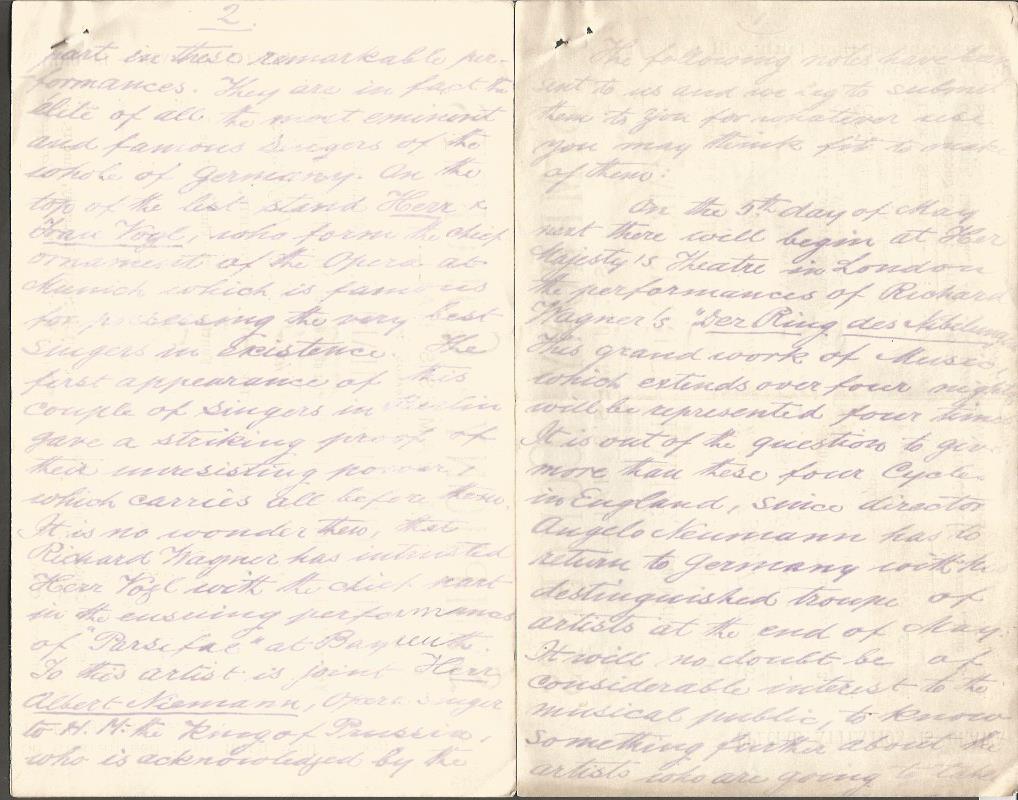 The following notes have been
sent to us and we beg to submit
them to you for whatever use
you may think fit to make
of them:
On the 5th day of May
next there will begin at Her
Majesty's Theatre in London
the performances of Richard
Wagner's "Der Ring des Nibelungen
This grand work of Music,
which extends over four nights
will be represented four times
It is out of the question to give
more than these four Cycles
in England, since director
Angelo Neumann has to
return to Germany with his
destinguished troupe of
artists at the end of May.
It will no doubt be of
considerable interest to the
musical public, to know
something further about the
artists who are going to take
2.
part in these remarkable per-
formances. They are in fact the
elite of all the most eminent
and famous singers of the
whole of Germany. On the
top of the list stand Herr &
Frau Vogl, who form the chief
ornament of the Opera at
Munich which is famous
for possessing the very best
singers in existence. The
first appearance of this
couple of singers in Berlin
gave a striking proof of
their unresisting power,
which carries all before them.
It is no wonder then, that
Richard Wagner has intrusted
Herr Vogl with the chief part
in the ensuing performances
of "Parsifal" at Bayreuth.
To this artist is joint Herr
Albert Niemann, Opera singer
to H. M. the King of Prussia,
who is acknowledged by the